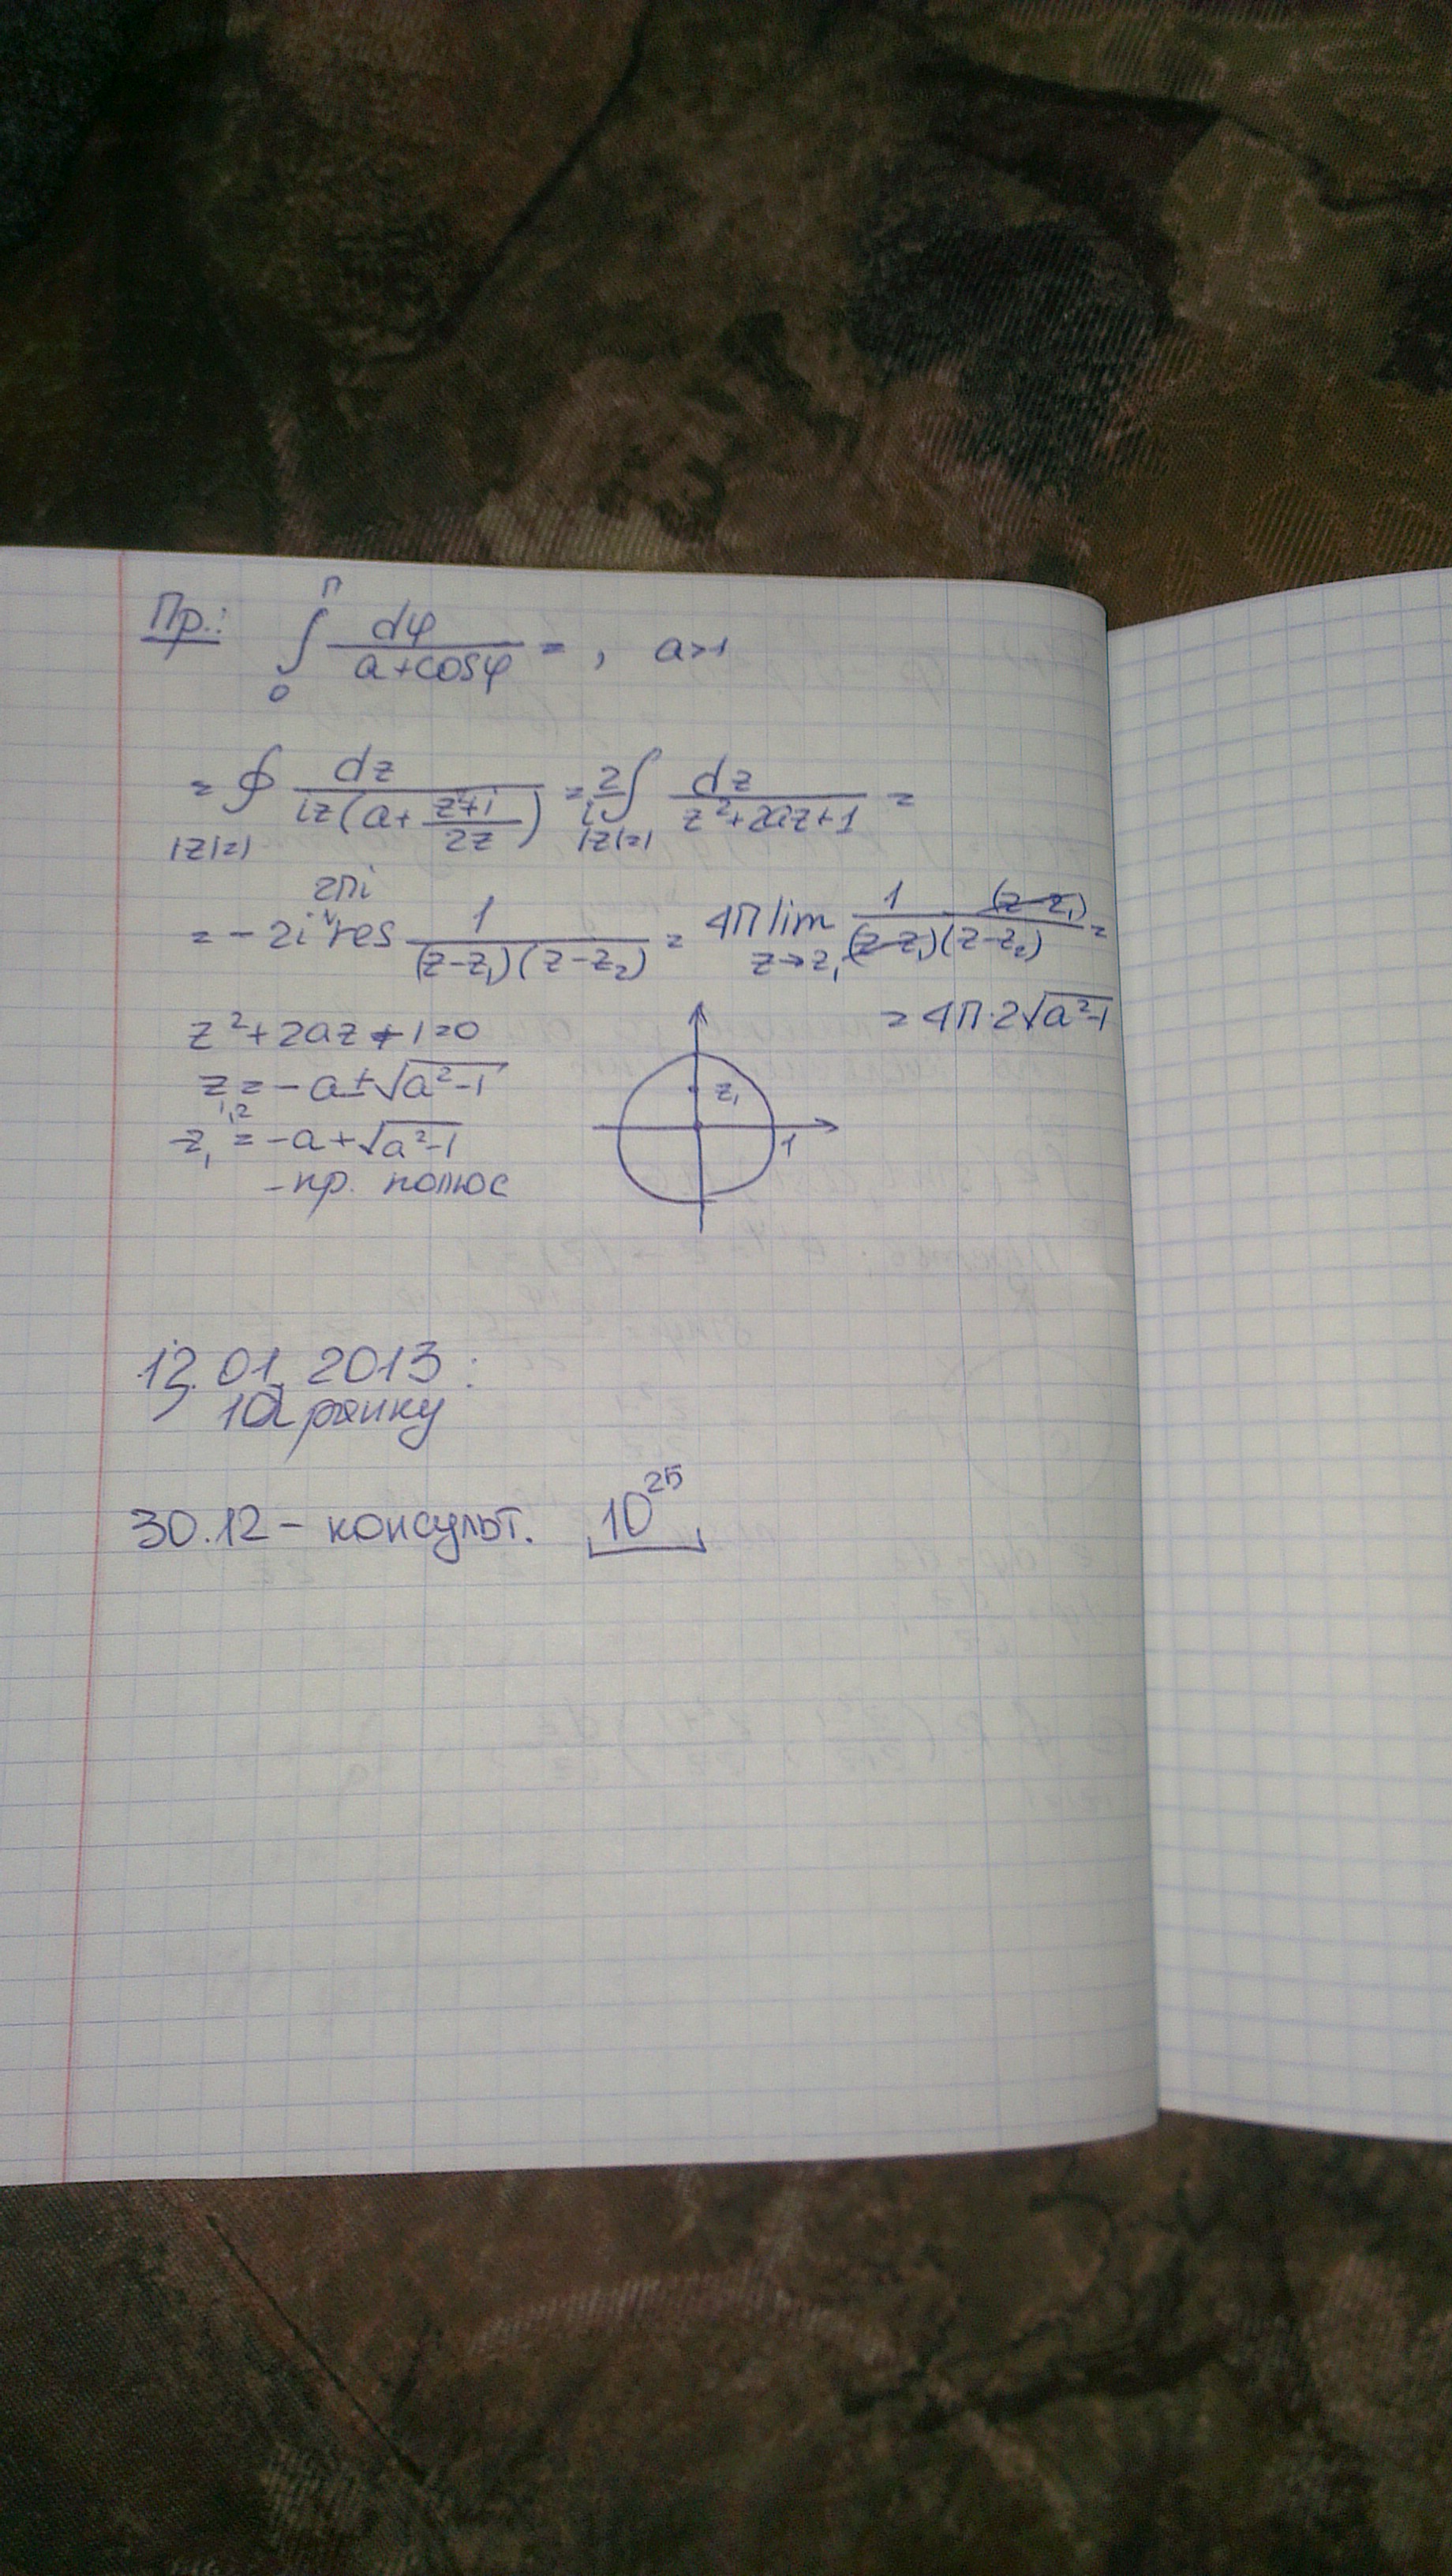 Пр.: ∫₀^π dφ/(a+cosφ) = , a>1
= ∮_{|z|=1} dz/(iz(a+(z²+1)/2z)) = 2/i ∫_{|z|=1} dz/(z²+2az+1) =
= -2i 2πi res 1/((z-z₁)(z-z₂)) = 4π lim_{z→z₁} 1 (z-z₁)/((z-z₁)(z-z₂)) =
= 4π·2√(a²-1)
z²+2az+1=0
z₁,₂=-a±√(a²-1)
z₁=-a+√(a²-1)
-пр. полюс
z₁
1
12.01.2013:
30.12 – консульт. 10²⁵